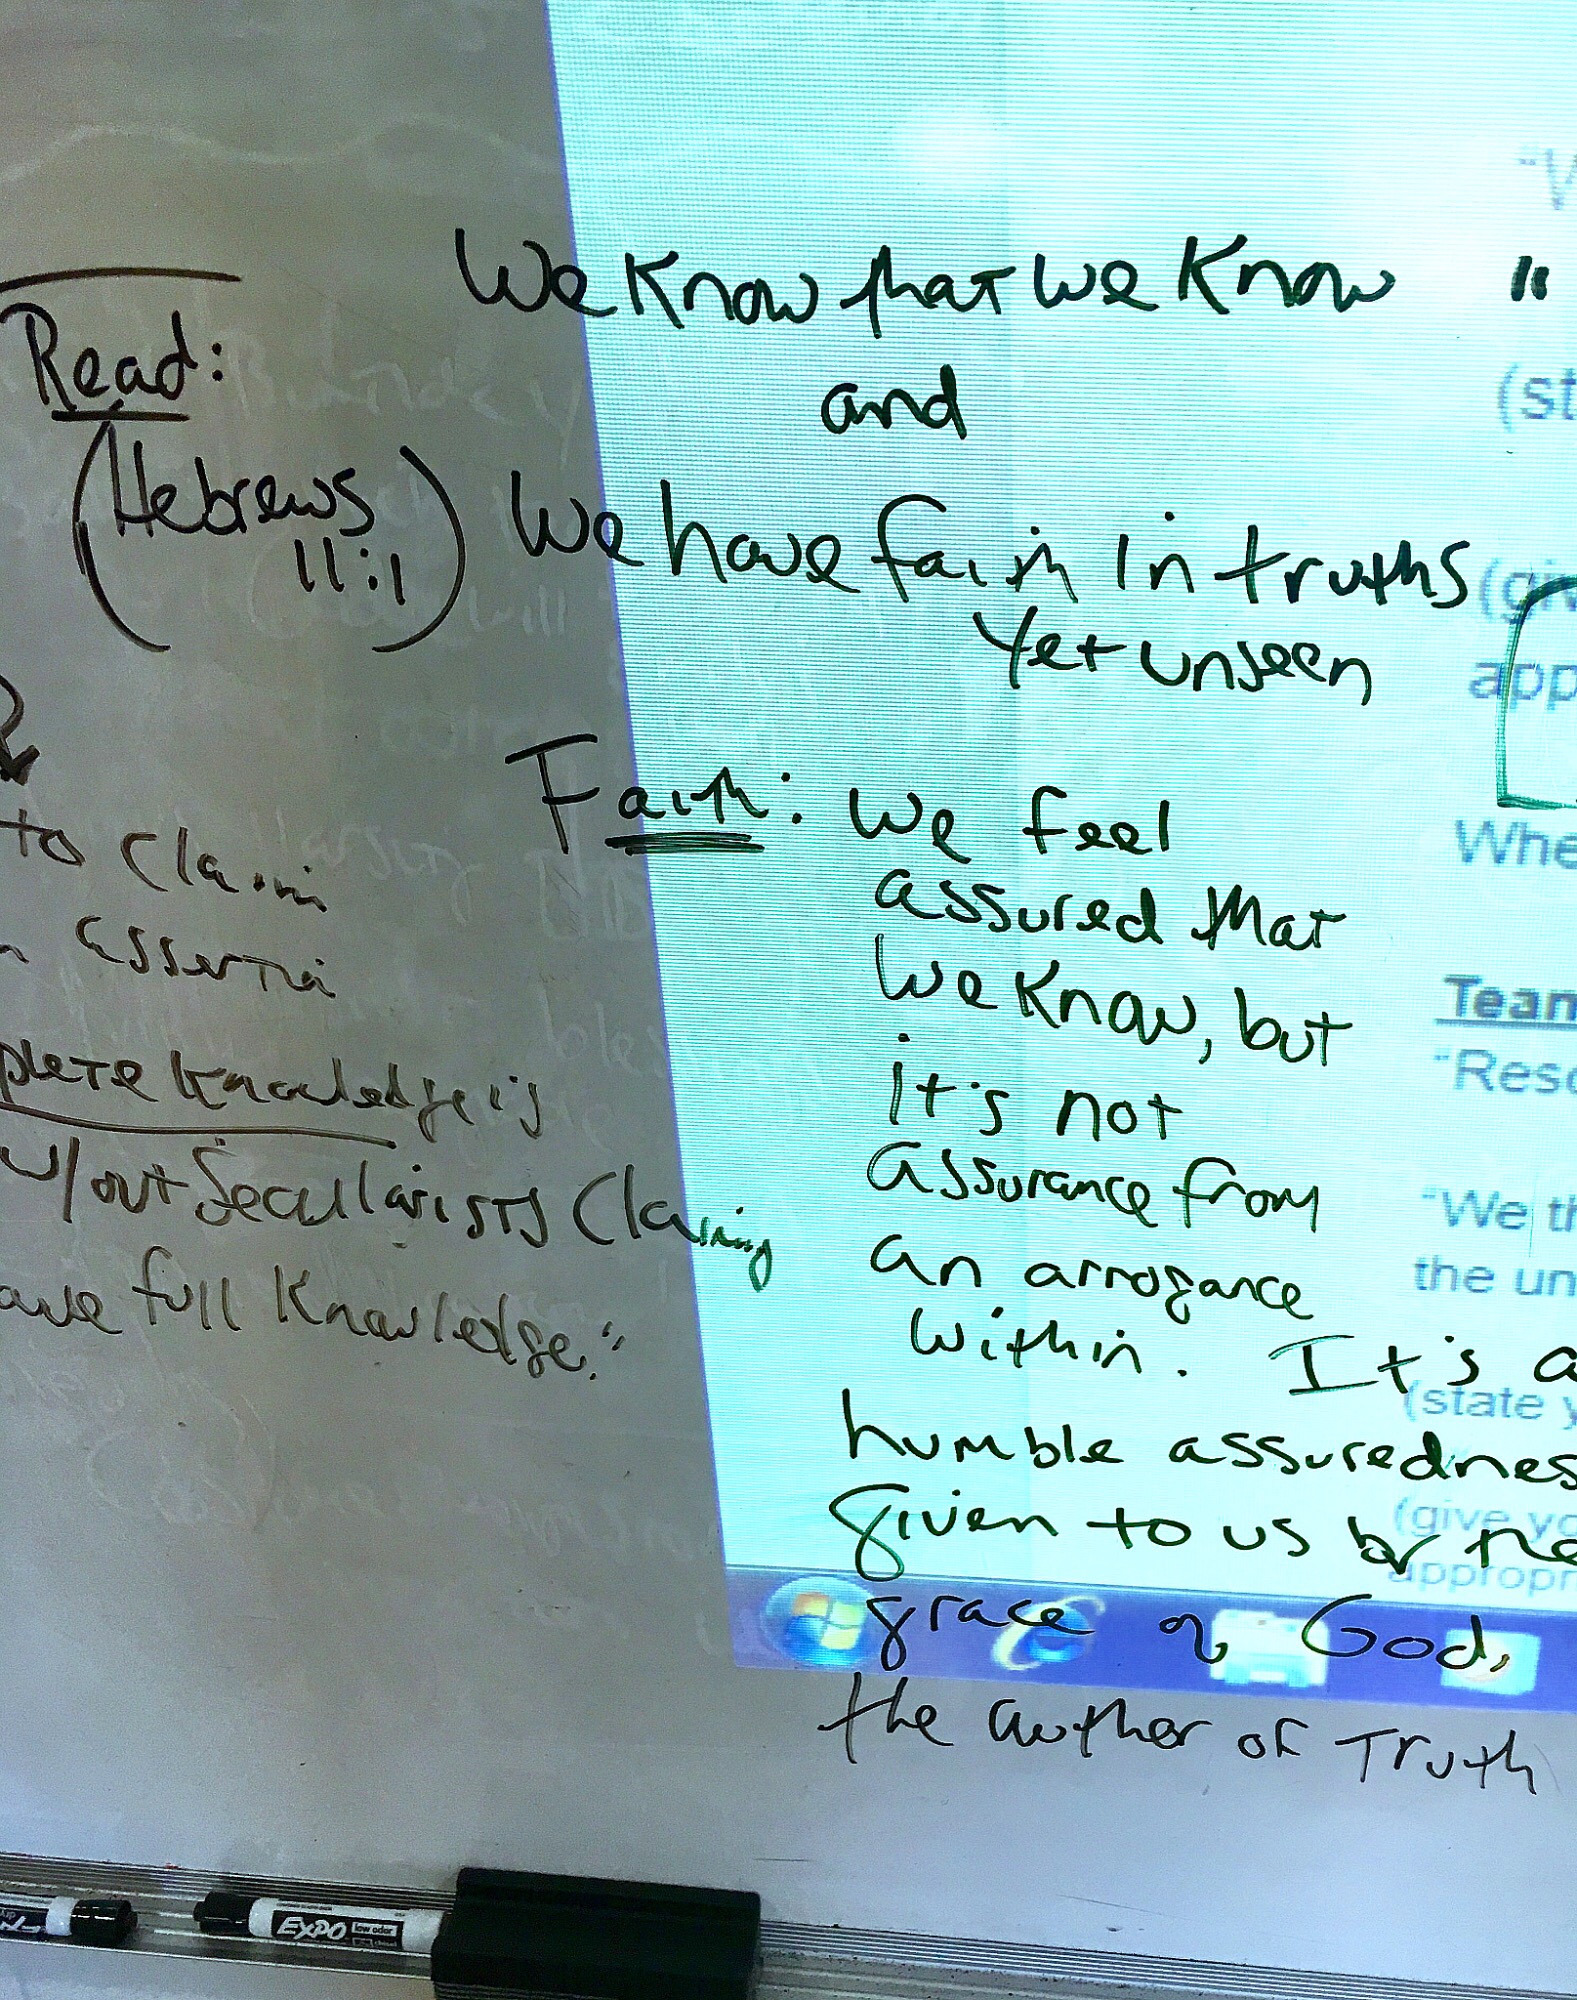 We know that we know "
and
Read:
(Hebrews
11:1)
We have faith in truths
Yet unseen
Faith: We feel
assured that
we know, but
it's not
assurance from
an arrogance
within. It's a
humble assurednes
given to us by the
grace of God,
the author of Truth
to claim
plete knowledge is
w/out Secularists Claiming
ave full knowledge."
(st
(giv
app
Whe
Team
"Reso
"We th
the un
(state y
(give yo
appropr
EXPO
low odor